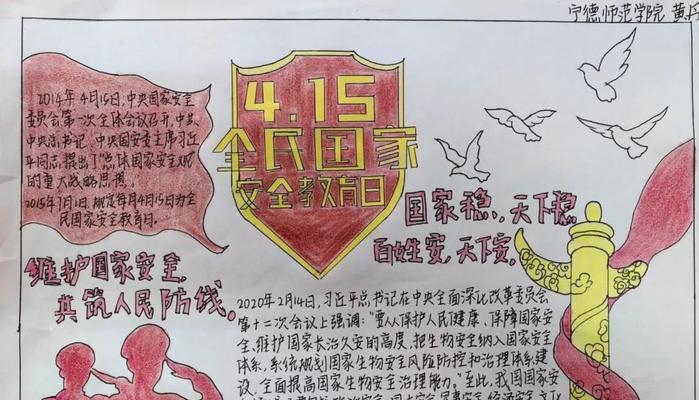 宁德师范学院 黄
2014年4月15日,中央国家安全
委员会第一次全体会议召开,中共
中央总书记、中央国安委主席习近
平同志提出了"总体国家安全观"
的重大战略思想。
2015年7月1日,规定每月4月15日为全
民国家安全教育日。
4.15
全民国家
安全教育日
国家稳,天下稳
百姓安,天下安。
维护国家安全,
共筑人民防线。
2020年2月14日,习近平总书记在中央全面深化改革委员会
第十二次会议上强调:"要从保护人民健康、保障国家安
全、维护国家长治久安的高度,把生物安全纳入国家安全
体系,系统规划国家生物安全风险防控和治理体系建
设,全面提高国家生物安全治理能力。"至此,我国国家安